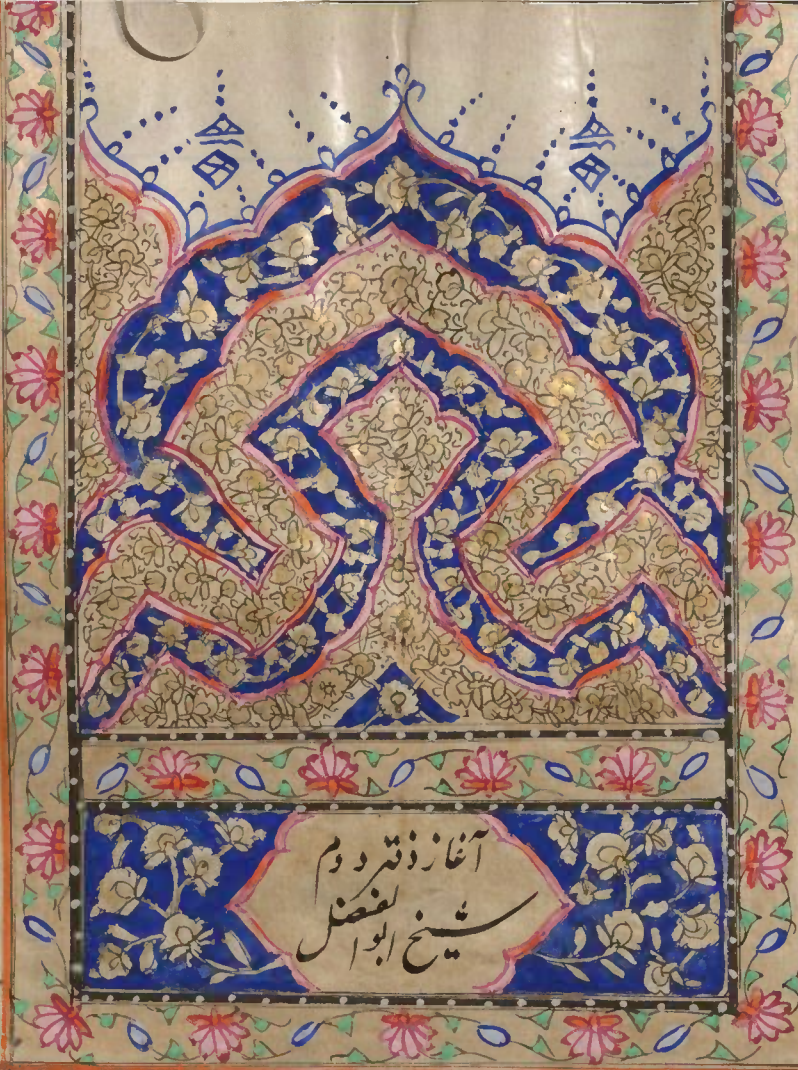 آغاز دفتر دوم
شیخ ابوالفضل